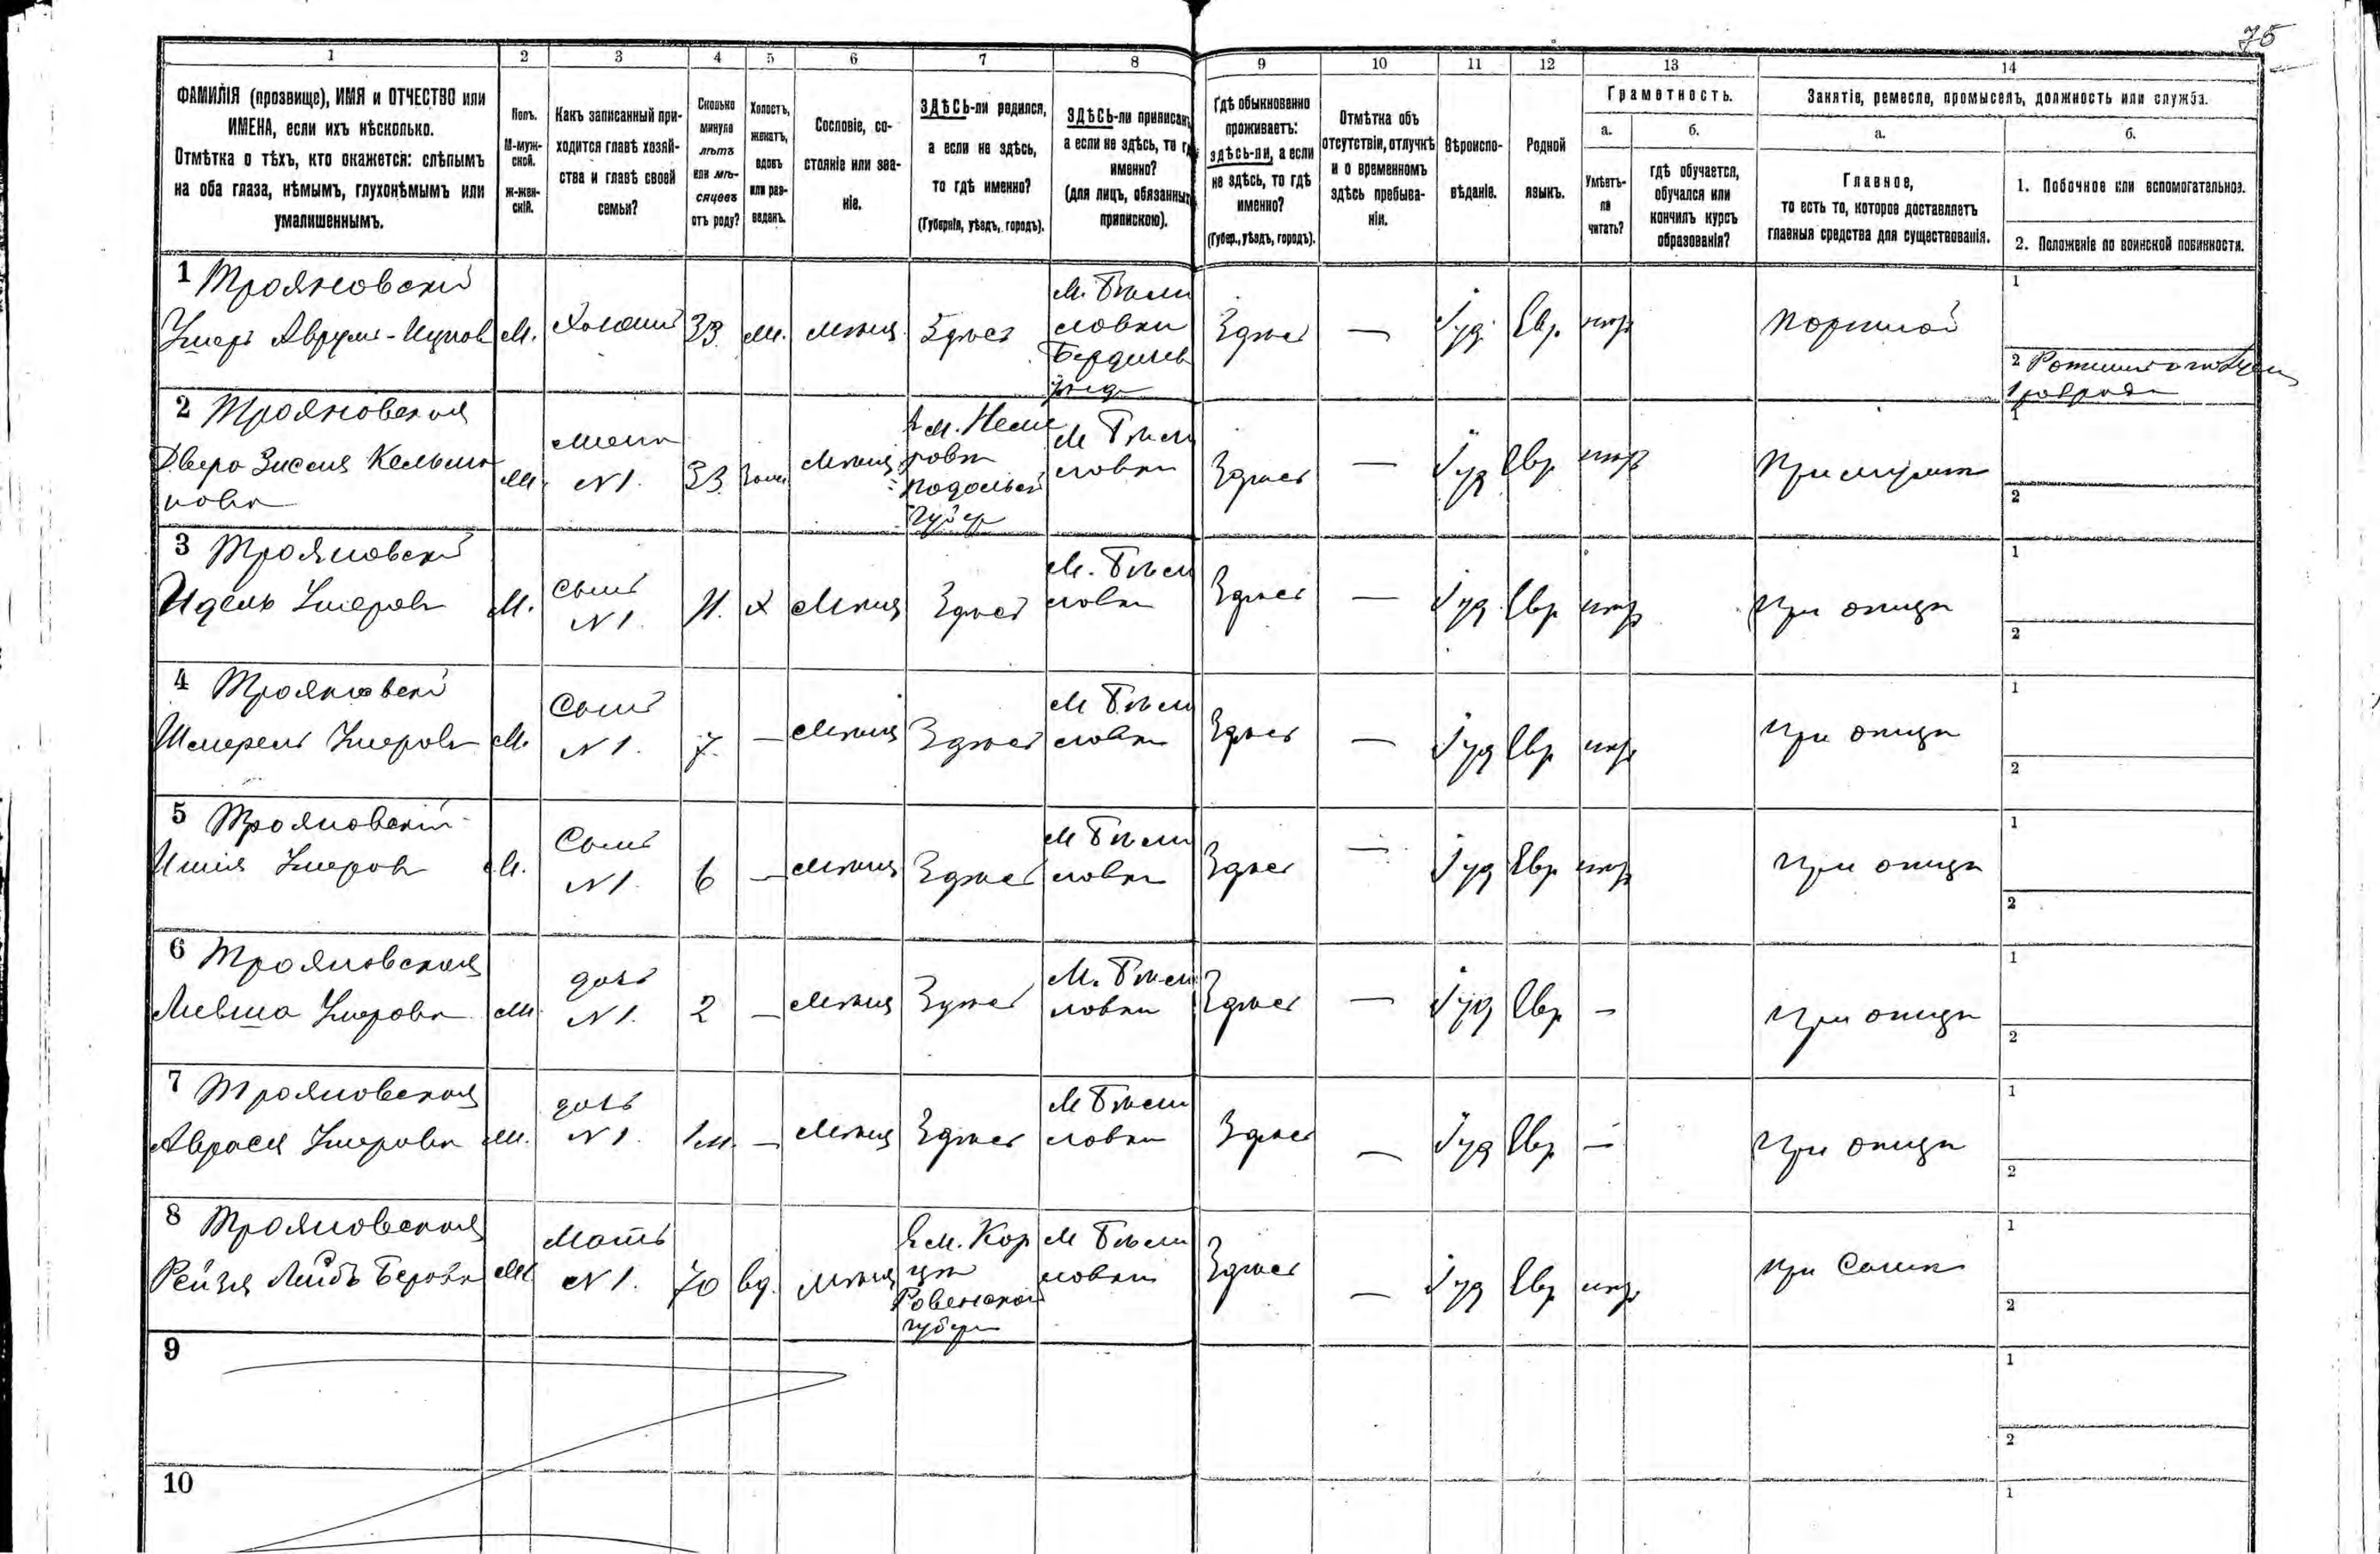 75
1 2 3 4 5 6 7 8 9 10 11 12 13 14
ФАМИЛІЯ (прозвище), ИМЯ и ОТЧЕСТВО или
ИМЕНА, если ихъ нѣсколько.
Отмѣтка о тѣхъ, кто окажется: слѣпымъ
на оба глаза, нѣмымъ, глухонѣмымъ или
умалишеннымъ.
Полъ.
М-муж-
ской.
ж-жен-
скій.
Какъ записанный при-
ходится главѣ хозяй-
ства и главѣ своей
семьи?
Сколько
минуло
лѣтъ
или мѣ-
сяцевъ
отъ роду?
Холостъ,
женатъ,
вдовъ
или раз-
веденъ.
Сословіе, со-
стояніе или зва-
ніе.
ЗДѢСЬ-ли родился,
а если не здѣсь,
то гдѣ именно?
(Губернія, уѣздъ, городъ).
ЗДѢСЬ-ли приписанъ,
а если не здѣсь, то гдѣ
именно?
(для лицъ, обязанныхъ
припискою).
Гдѣ обыкновенно
проживаетъ:
здѣсь-ли, а если
не здѣсь, то гдѣ
именно?
(Губер., уѣздъ, городъ).
Отмѣтка объ
отсутствіи, отлучкѣ
и о временномъ
здѣсь пребыва-
ніи.
Вѣроиспо-
вѣданіе.
Родной
языкъ.
Грамотность.
а.
Умѣетъ-
ли
читать?
б.
гдѣ обучается,
обучался или
кончилъ курсъ
образованія?
Занятіе, ремесло, промыселъ, должность или служба.
а.
Главное,
то есть то, которое доставляетъ
главныя средства для существованія.
б.
1. Побочное или вспомогательное.
2. Положеніе по воинской повинности.
1 Трояновскій
Умеръ Аврумъ-Ицков М. Хозяинъ 33 Мѣщ. Здѣсь
М. Бѣли
ловки
Бердичев
уѣзд
Здѣсь — Іуд. Евр. Портной
1
2
2 Трояновская
Двера Зисля Кельма
нова
жена
N 1. 33 Зам Мѣщ
В м. Неми
ровѣ
Подольск
Губер
М Бѣли
ловки
Здѣсь — Іуд Евр При мужѣ
1
2
3 Трояновскій
Идель Умеров М. Сынъ
N 1. 11. Х Мѣщ Здѣсь
М. Бѣли
ловки
Здѣсь — Іуд. Евр При отцѣ
1
2
4 Трояновскій
Шмерель Умеров М. Сынъ
N 1. 7. — Мѣщ Здѣсь
М Бѣли
ловки
Здѣсь — Іуд Евр При отцѣ
1
2
5 Трояновскій
Умеров М. Сынъ
N 1. 6 — Мѣщ Здѣсь
М Бѣли
ловки
Здѣсь — Іуд Евр При отцѣ
1
2
6 Трояновская
Умерова Ж дочь
N 1. 2 — Мѣщ Здѣсь
М. Бѣли
ловки
Здѣсь — Іуд Евр — При отцѣ
1
2
7 Трояновская
Умерова Ж. дочь
N 1. 1 м. — Мѣщ Здѣсь
М Бѣли
ловки
Здѣсь — Іуд Евр — При отцѣ
1
2
8 Трояновская
Рейзя Лейбъ Берова Ж Мать
N 1. 70 вд. Мѣщ
В м. Кор
цѣ
Ровенской
губер
М Бѣли
ловки
Здѣсь — Іуд Евр При Сынѣ
1
2
9
1
2
10
1